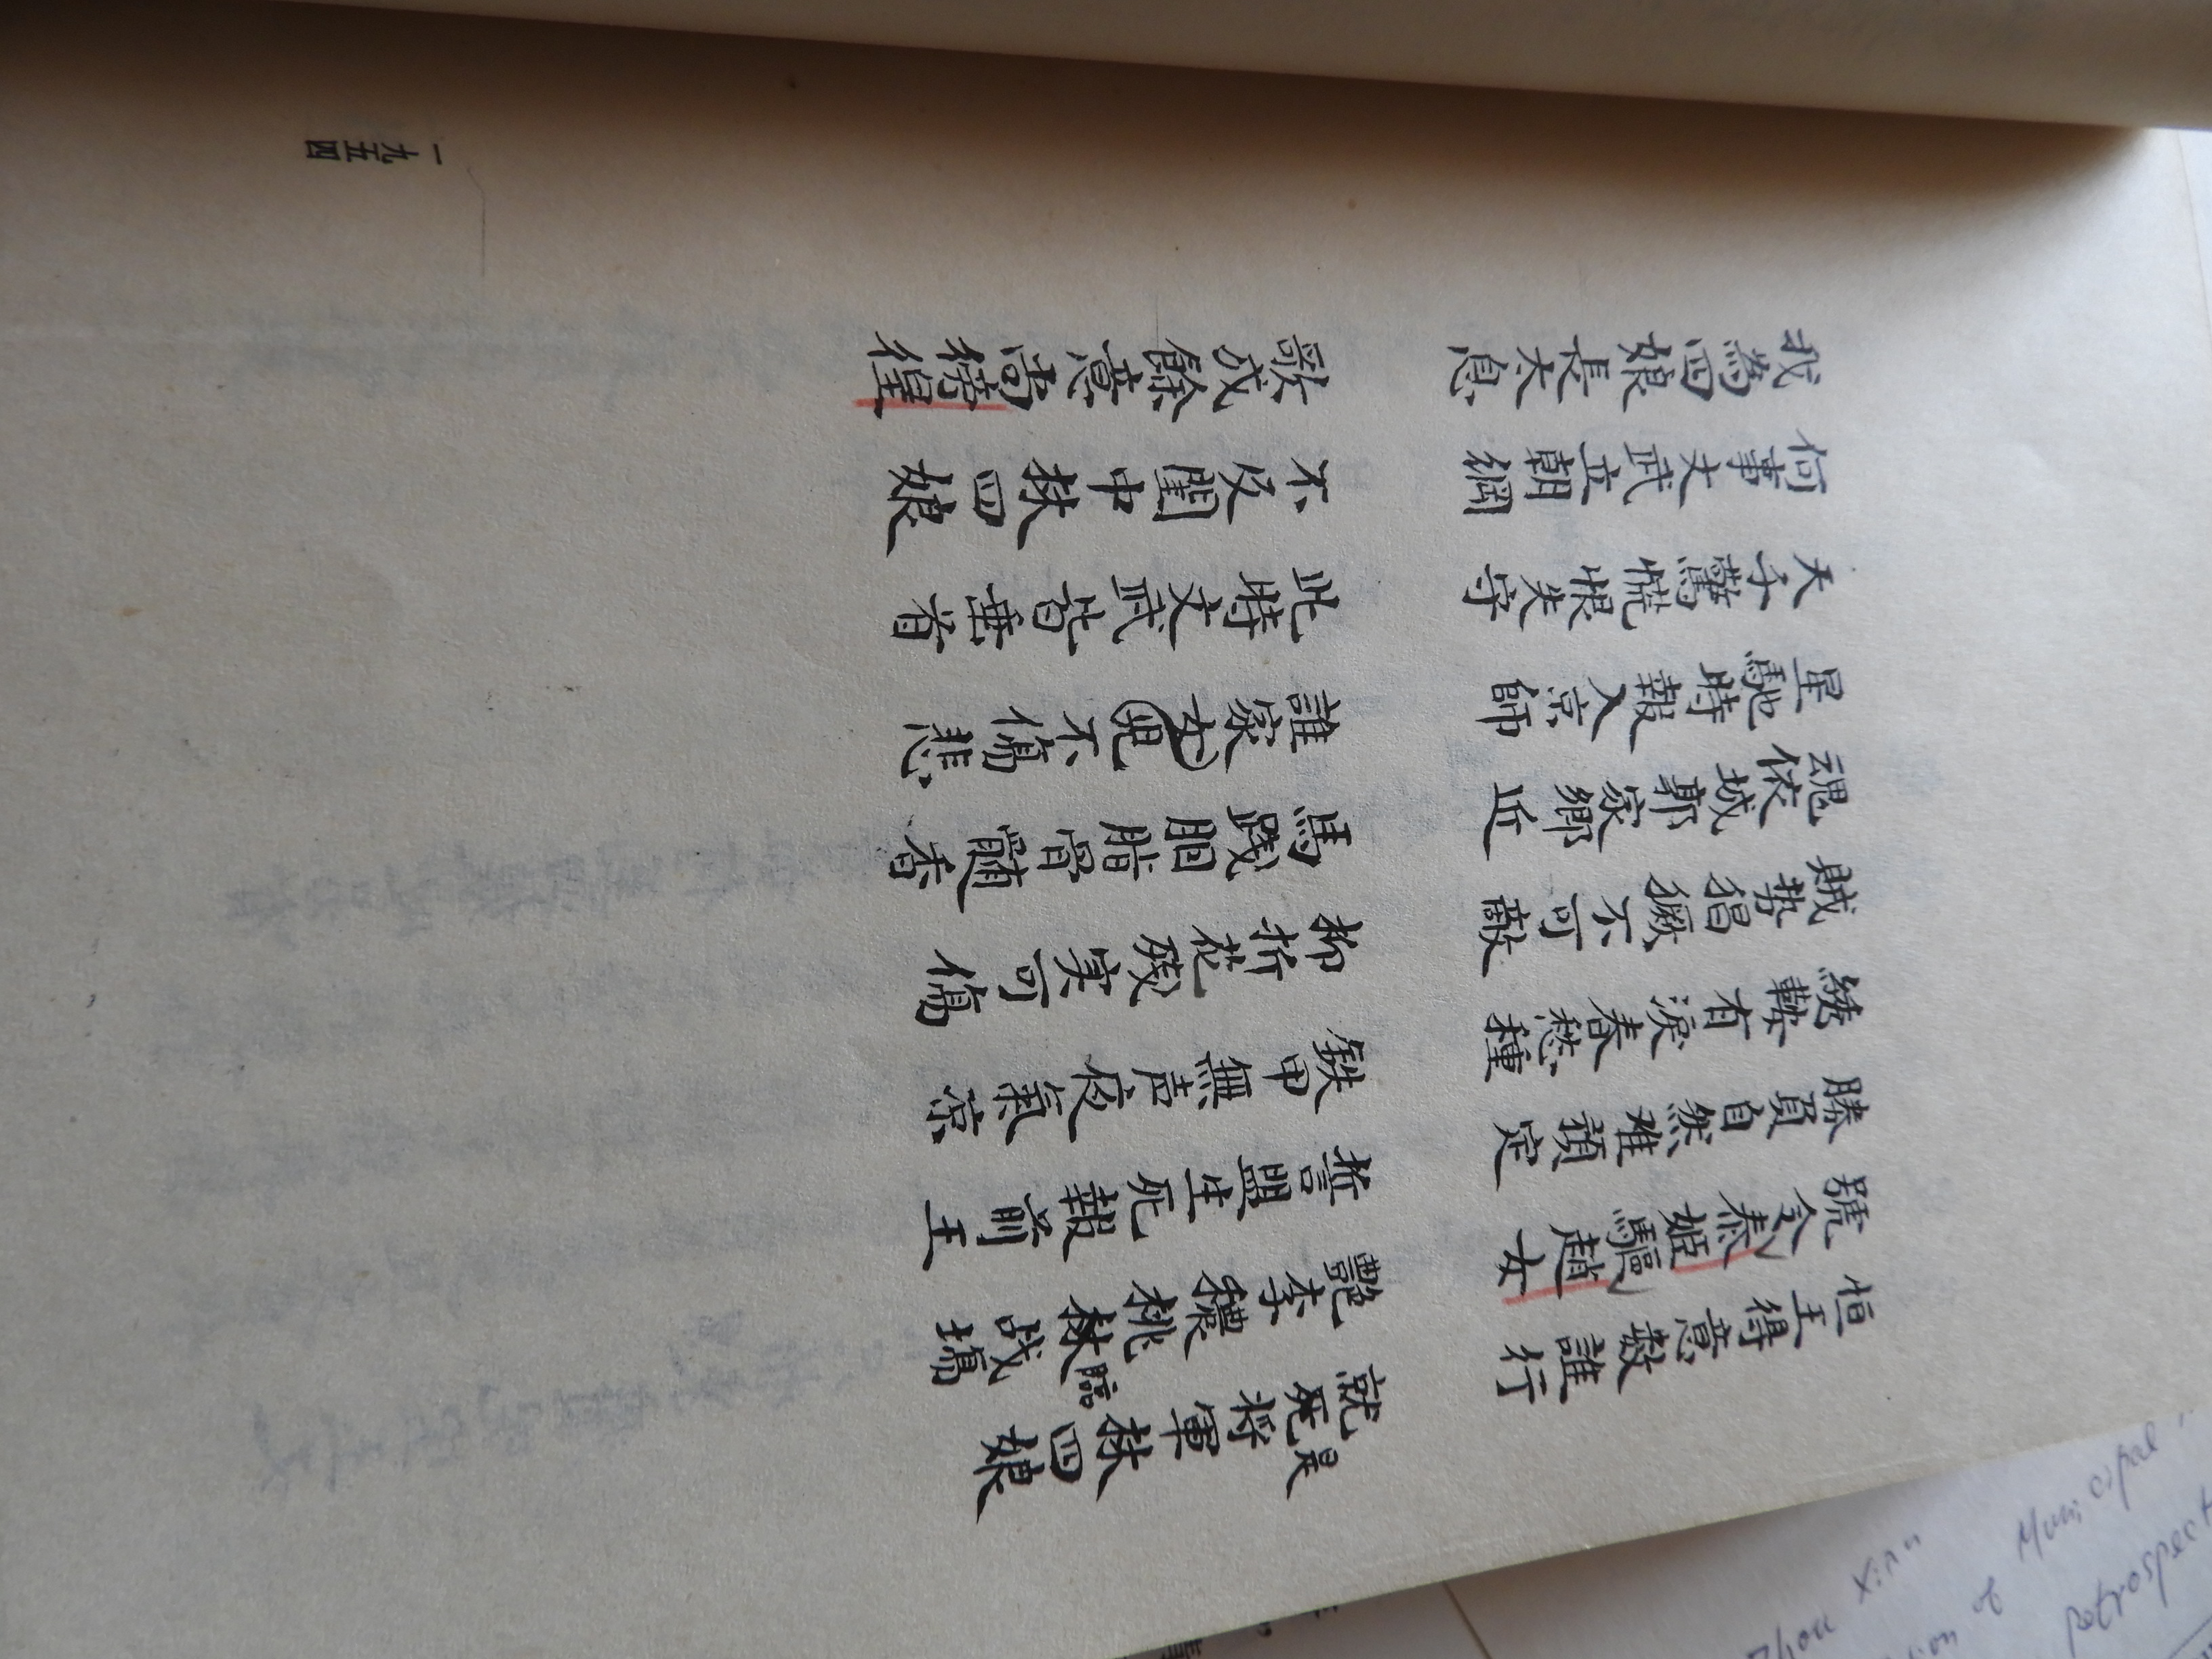 恒王得意數誰行 就死將軍林四娘
是
號令秦姬驅趙女 艷李穠桃林战場
臨
勝負自然难預定 誓盟生死報前王
繡鞍有淚春愁種 鉄甲無声夜氣凉
賊势猖獗不可敵 柳折花殘実可傷
魂依城郭家鄉近 馬踐胭脂骨髓香
星馳時報入京師 誰家女兒不傷悲
天子驚慌恨失守 此時文武皆垂首
何事文武立朝綱 不及閨中林四娘
我為四娘長太息 歌成餘意尚徬徨
一九五四
Zhou Xian
of Municipal
retrospect